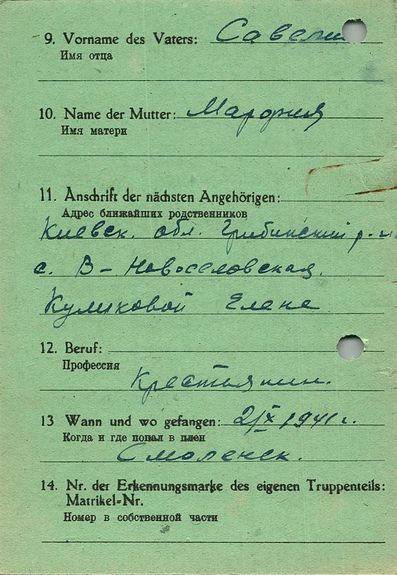 9. Vorname des Vaters: Савелий
Имя отца
10. Name der Mutter:
Имя матери
11. Anschrift der nächsten Angehörigen:
Адрес ближайших родственников
Киевск. обл. р-н
с. В-Новоселовская
Куликовой Елене
12. Beruf:
Профессия
Крестьянин.
13 Wann und wo gefangen: 2/X 1941 г.
Когда и где попал в плен
Смоленск.
14. Nr. der Erkennungsmarke des eigenen Truppenteils:
Matrikel-Nr.
Номер в собственной части